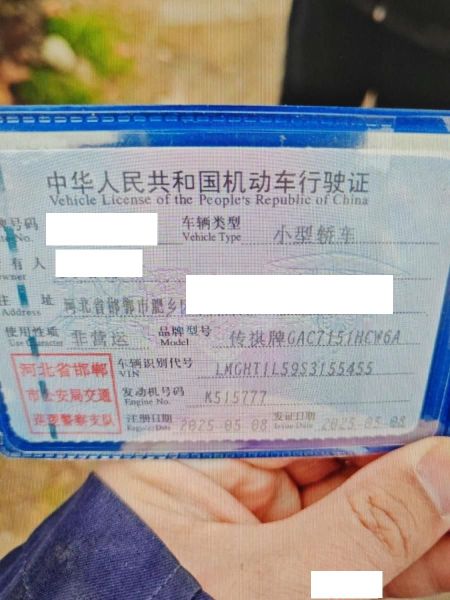 中华人民共和国机动车行驶证
Vehicle License of the People's Republic of China
牌号码 车辆类型 小型轿车
No. Vehicle Type
有人
Owner
住 址 河北省邯郸市肥乡区
Address
使用性质 非营运 品牌型号 传祺牌GAC7151HCW6A
Use Character Model
河北省邯郸 车辆识别代号 LMGHT1L59S3155455
VIN
市公安局交通 发动机号码 K515777
Engine No.
巡逻警察支队 注册日期 2025-05-08 发证日期 2025-05-08
Register Date Issue Date